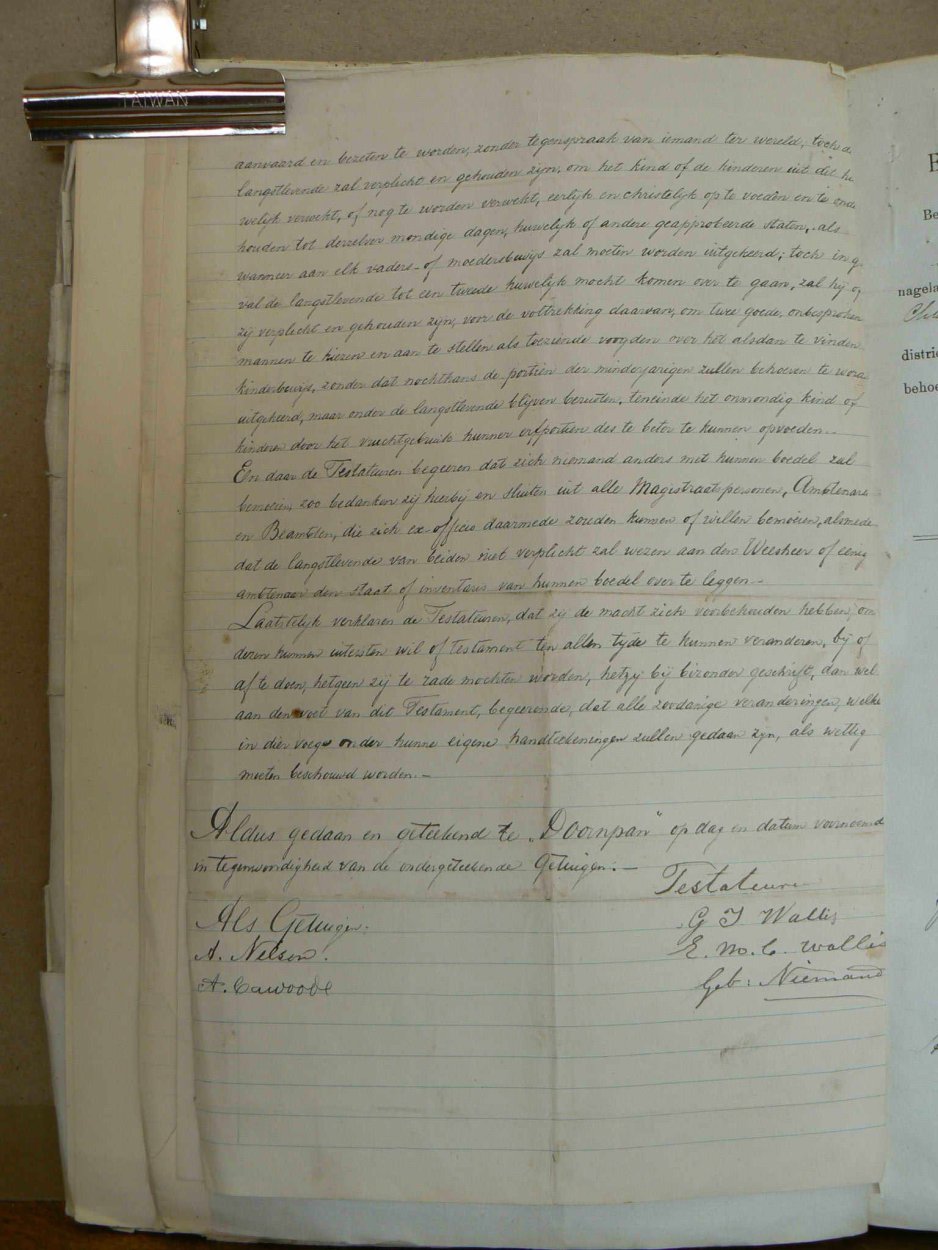 TAIWAN
aanvaard en bezeten te worden, zonder tegenspraak van iemand ter wereld; toch d
langstlevende zal verplicht en gehouden zijn, om het kind of de kinderen uit dit hu
welijk verwekt, of nog te worden verwekt, eerlijk en christelijk op te voeden en te onde
houden tot derzelver mondige dagen, huwelijk of andere geapprobeerde staten, als
wanneer aan elk vaders- of moedersbewijs zal moeten worden uitgekeerd; toch in g
val de langstlevende tot een tweede huwelijk mocht komen over te gaan, zal hij of
zij verplicht en gehouden zijn, voor de voltrekking daarvan, om twee goede, onbesproken
mannen te kiezen en aan te stellen als toeziende voogden over het alsdan te vinden
kinderbewijs, zonder dat nochthans de portien der minderjarigen zullen behoeven te word
uitgekeerd, maar onder de langstlevende blijven berusten, teneinde het onmondig kind of
kinderen door het vruchtgebruik hunner erfportien des te beter te kunnen opvoeden.-
En daar de Testateuren begeeren dat zich niemand anders met hunnen boedel zal
bemoeien, zoo bedanken zij hierbij en sluiten uit alle Magistraatspersonen, Ambtenaren
en Beambten, die zich ex-officio daarmede zouden kunnen of willen bemoeien, alsmede
dat de langstlevende van beiden niet verplicht zal wezen aan den Weesheer of eenig
ambtenaar den staat of inventaris van hunnen boedel over te leggen.-
Laatstelijk verklaren de Testateuren, dat zij de macht zich voorbehouden hebben, om
dezen hunnen uitersten wil of testament ten allen tyde te kunnen veranderen, bij of
af te doen, hetgeen zij te rade mochten worden, hetzij bij bizonder geschrift, dan wel
aan den voet van dit Testament, begeerende, dat alle zoodanige veranderingen, welke
in dier voege onder hunne eigene handteekeningen zullen gedaan zijn, als wettig
moeten beschouwd worden.-
Aldus gedaan en geteekend te „Doornpan" op dag en datum voornoemd
in tegenwoordigheid van de ondergeteekende Getuigen.-
Testateuren
Als Getuigen:
G J Wallis
A. Nelson.
E. M. C. Wallis
A. Cawood
Geb: Niemand
Be
nagela
distri
behoe